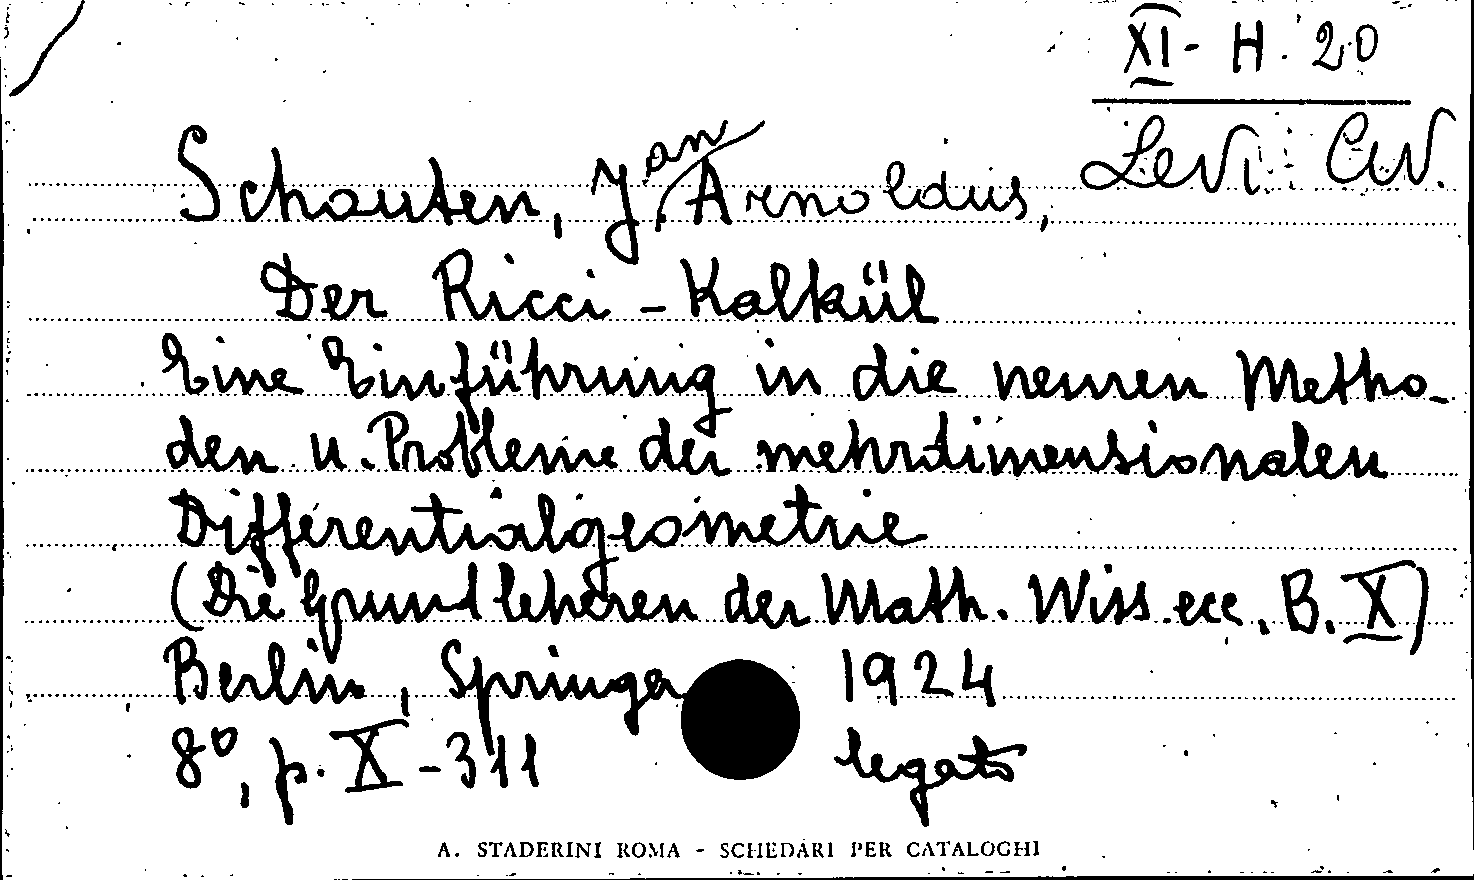 XI - H. 20
Levi-Civ.
Schouten, Jan Arnoldus,
Der Ricci - Kalkül
Eine Einführung in die neuren Metho-
den u. Probleme der mehrdimensionalen
Differentialgeometrie
(Die Grundleheren der Math. Wiss. ecc. B. X)
Berlin, Springer 1924
8°, p. X - 311 legato
A. STADERINI ROMA - SCHEDARI PER CATALOGHI